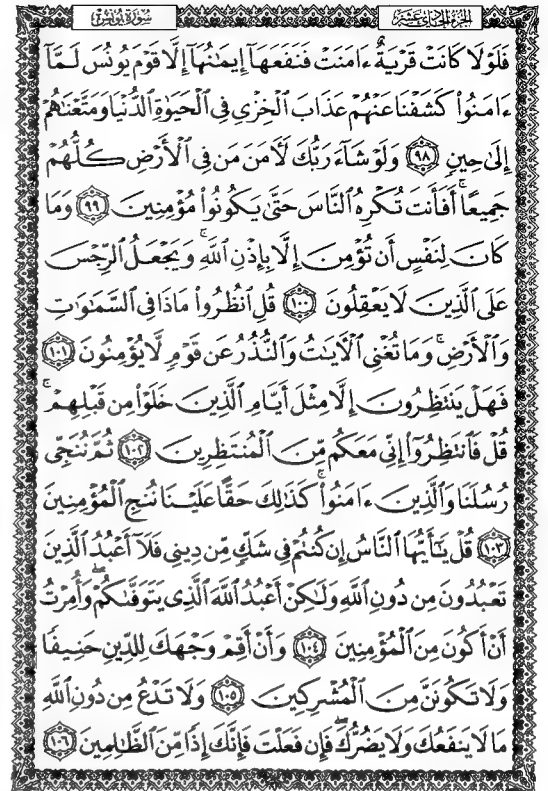 سُورَةُ يُونُسَ الجُزْءُ الحَادِي عَشَرَ
فَلَوْلَا كَانَتْ قَرْيَةٌ ءَامَنَتْ فَنَفَعَهَآ إِيمَٰنُهَآ إِلَّا قَوْمَ يُونُسَ لَمَّآ
ءَامَنُوا۟ كَشَفْنَا عَنْهُمْ عَذَابَ ٱلْخِزْىِ فِى ٱلْحَيَوٰةِ ٱلدُّنْيَا وَمَتَّعْنَٰهُمْ
إِلَىٰ حِينٍ ٩٨ وَلَوْ شَآءَ رَبُّكَ لَءَامَنَ مَن فِى ٱلْأَرْضِ كُلُّهُمْ
جَمِيعًا ۚ أَفَأَنتَ تُكْرِهُ ٱلنَّاسَ حَتَّىٰ يَكُونُوا۟ مُؤْمِنِينَ ٩٩ وَمَا
كَانَ لِنَفْسٍ أَن تُؤْمِنَ إِلَّا بِإِذْنِ ٱللَّهِ ۚ وَيَجْعَلُ ٱلرِّجْسَ
عَلَى ٱلَّذِينَ لَا يَعْقِلُونَ ١٠٠ قُلِ ٱنظُرُوا۟ مَاذَا فِى ٱلسَّمَٰوَٰتِ
وَٱلْأَرْضِ ۚ وَمَا تُغْنِى ٱلْءَايَٰتُ وَٱلنُّذُرُ عَن قَوْمٍ لَّا يُؤْمِنُونَ ١٠١
فَهَلْ يَنتَظِرُونَ إِلَّا مِثْلَ أَيَّامِ ٱلَّذِينَ خَلَوْا۟ مِن قَبْلِهِمْ ۚ
قُلْ فَٱنتَظِرُوٓا۟ إِنِّى مَعَكُم مِّنَ ٱلْمُنتَظِرِينَ ١٠٢ ثُمَّ نُنَجِّى
رُسُلَنَا وَٱلَّذِينَ ءَامَنُوا۟ ۚ كَذَٰلِكَ حَقًّا عَلَيْنَا نُنجِ ٱلْمُؤْمِنِينَ
١٠٣ قُلْ يَٰٓأَيُّهَا ٱلنَّاسُ إِن كُنتُمْ فِى شَكٍّ مِّن دِينِى فَلَآ أَعْبُدُ ٱلَّذِينَ
تَعْبُدُونَ مِن دُونِ ٱللَّهِ وَلَٰكِنْ أَعْبُدُ ٱللَّهَ ٱلَّذِى يَتَوَفَّىٰكُمْ ۖ وَأُمِرْتُ
أَنْ أَكُونَ مِنَ ٱلْمُؤْمِنِينَ ١٠٤ وَأَنْ أَقِمْ وَجْهَكَ لِلدِّينِ حَنِيفًا
وَلَا تَكُونَنَّ مِنَ ٱلْمُشْرِكِينَ ١٠٥ وَلَا تَدْعُ مِن دُونِ ٱللَّهِ
مَا لَا يَنفَعُكَ وَلَا يَضُرُّكَ ۖ فَإِن فَعَلْتَ فَإِنَّكَ إِذًا مِّنَ ٱلظَّٰلِمِينَ ١٠٦